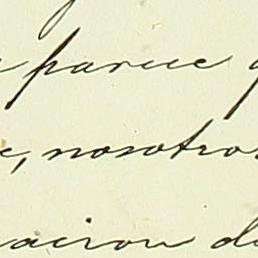 parece
nosotros
acion de